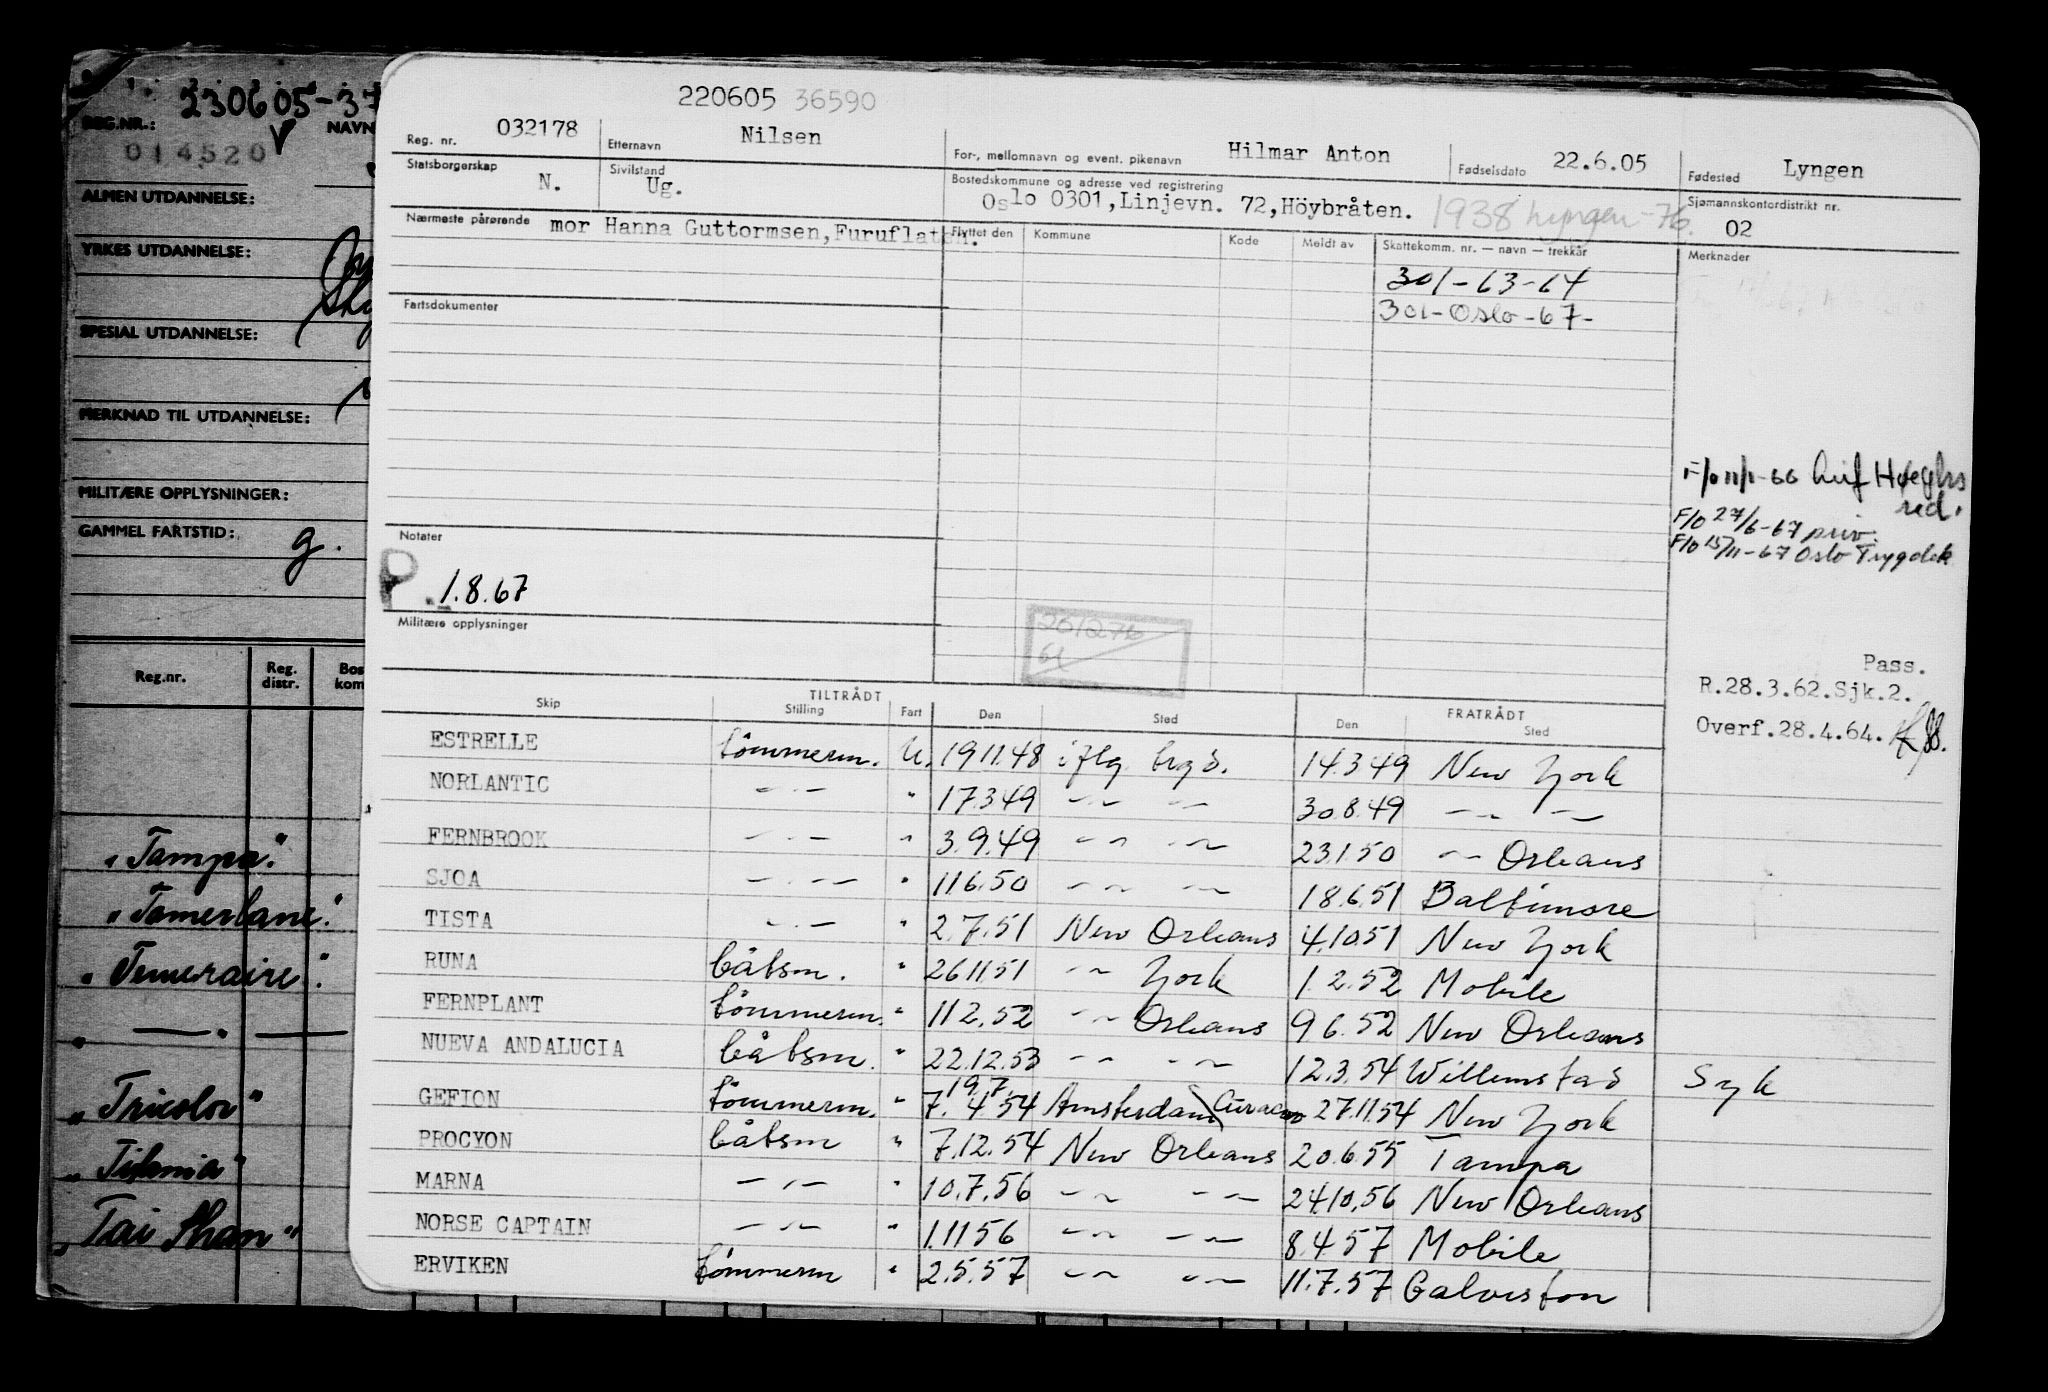 230605-37
REG.NR.:
NAVN
014520
ALMEN UTDANNELSE:
YRKES UTDANNELSE:
SPESIAL UTDANNELSE:
MERKNAD TIL UTDANNELSE:
MILITÆRE OPPLYSNINGER:
GAMMEL FARTSTID: g.
Reg.nr. Reg. distr. Bos kom
"Tampa"
"Tamerlane"
"Temeraire"
" — " —
"Tricolor"
"Titania"
"Tai Shan"
220605 36590
Reg. nr. 032178 Etternavn Nilsen For-, mellomnavn og event. pikenavn Hilmar Anton Fødselsdato 22.6.05 Fødested Lyngen
Statsborgerskap N. Sivilstand Ug. Bostedskommune og adresse ved registrering Oslo 0301,Linjevn. 72,Höybråten. 1938 Lyngen-76. Sjømannskontordistrikt nr. 02
Nærmeste pårørende mor Hanna Guttormsen,Furuflaten. Flyttet den Kommune Kode Meldt av Skattekomm. nr. — navn — trekkår Merknader
301-63-64
Fartsdokumenter 301-Oslo-67-
F/o 11/1-66 Leif Höeghs red.
F/o 27/6-67 priv.
F/o 15/11-67 Oslo Trygdek
Notater
P 1.8.67
Militære opplysninger
Pass.
R.28.3.62.Sjk.2.
Overf.28.4.64.
TILTRÅDT FRATRÅDT
Skip Stilling Fart Den Sted Den Sted
ESTRELLE tömmerm. U. 19.11.48 iflg. brgd. 14.3.49 New York
NORLANTIC —"— " 17.3.49 —"— —"— 30.8.49 —"— —"—
FERNBROOK —"— " 3.9.49 —"— —"— 23.1.50 —"— Orleans
SJOA —"— " 11.6.50 —"— —"— 18.6.51 Baltimore
TISTA —"— " 2.7.51 New Orleans 4.10.51 New York
RUNA båtsm. " 26.11.51 —"— York 1.2.52 Mobile
FERNPLANT tömmerm. " 11.2.52 —"— Orleans 9.6.52 New Orleans
NUEVA ANDALUCIA båtsm. " 22.12.53 —"— —"— 12.3.54 Willemstad Syk
GEFION tömmerm. " 7.4.54 19.7. Amsterdam Curacao 27.11.54 New York
PROCYON båtsm " 7.12.54 New Orleans 20.6.55 Tampa
MARNA —"— " 10.7.56 —"— —"— 24.10.56 New Orleans
NORSE CAPTAIN —"— " 1.11.56 —"— —"— 8.4.57 Mobile
ERVIKEN tömmerm " 2.5.57 —"— —"— 11.7.57 Galveston